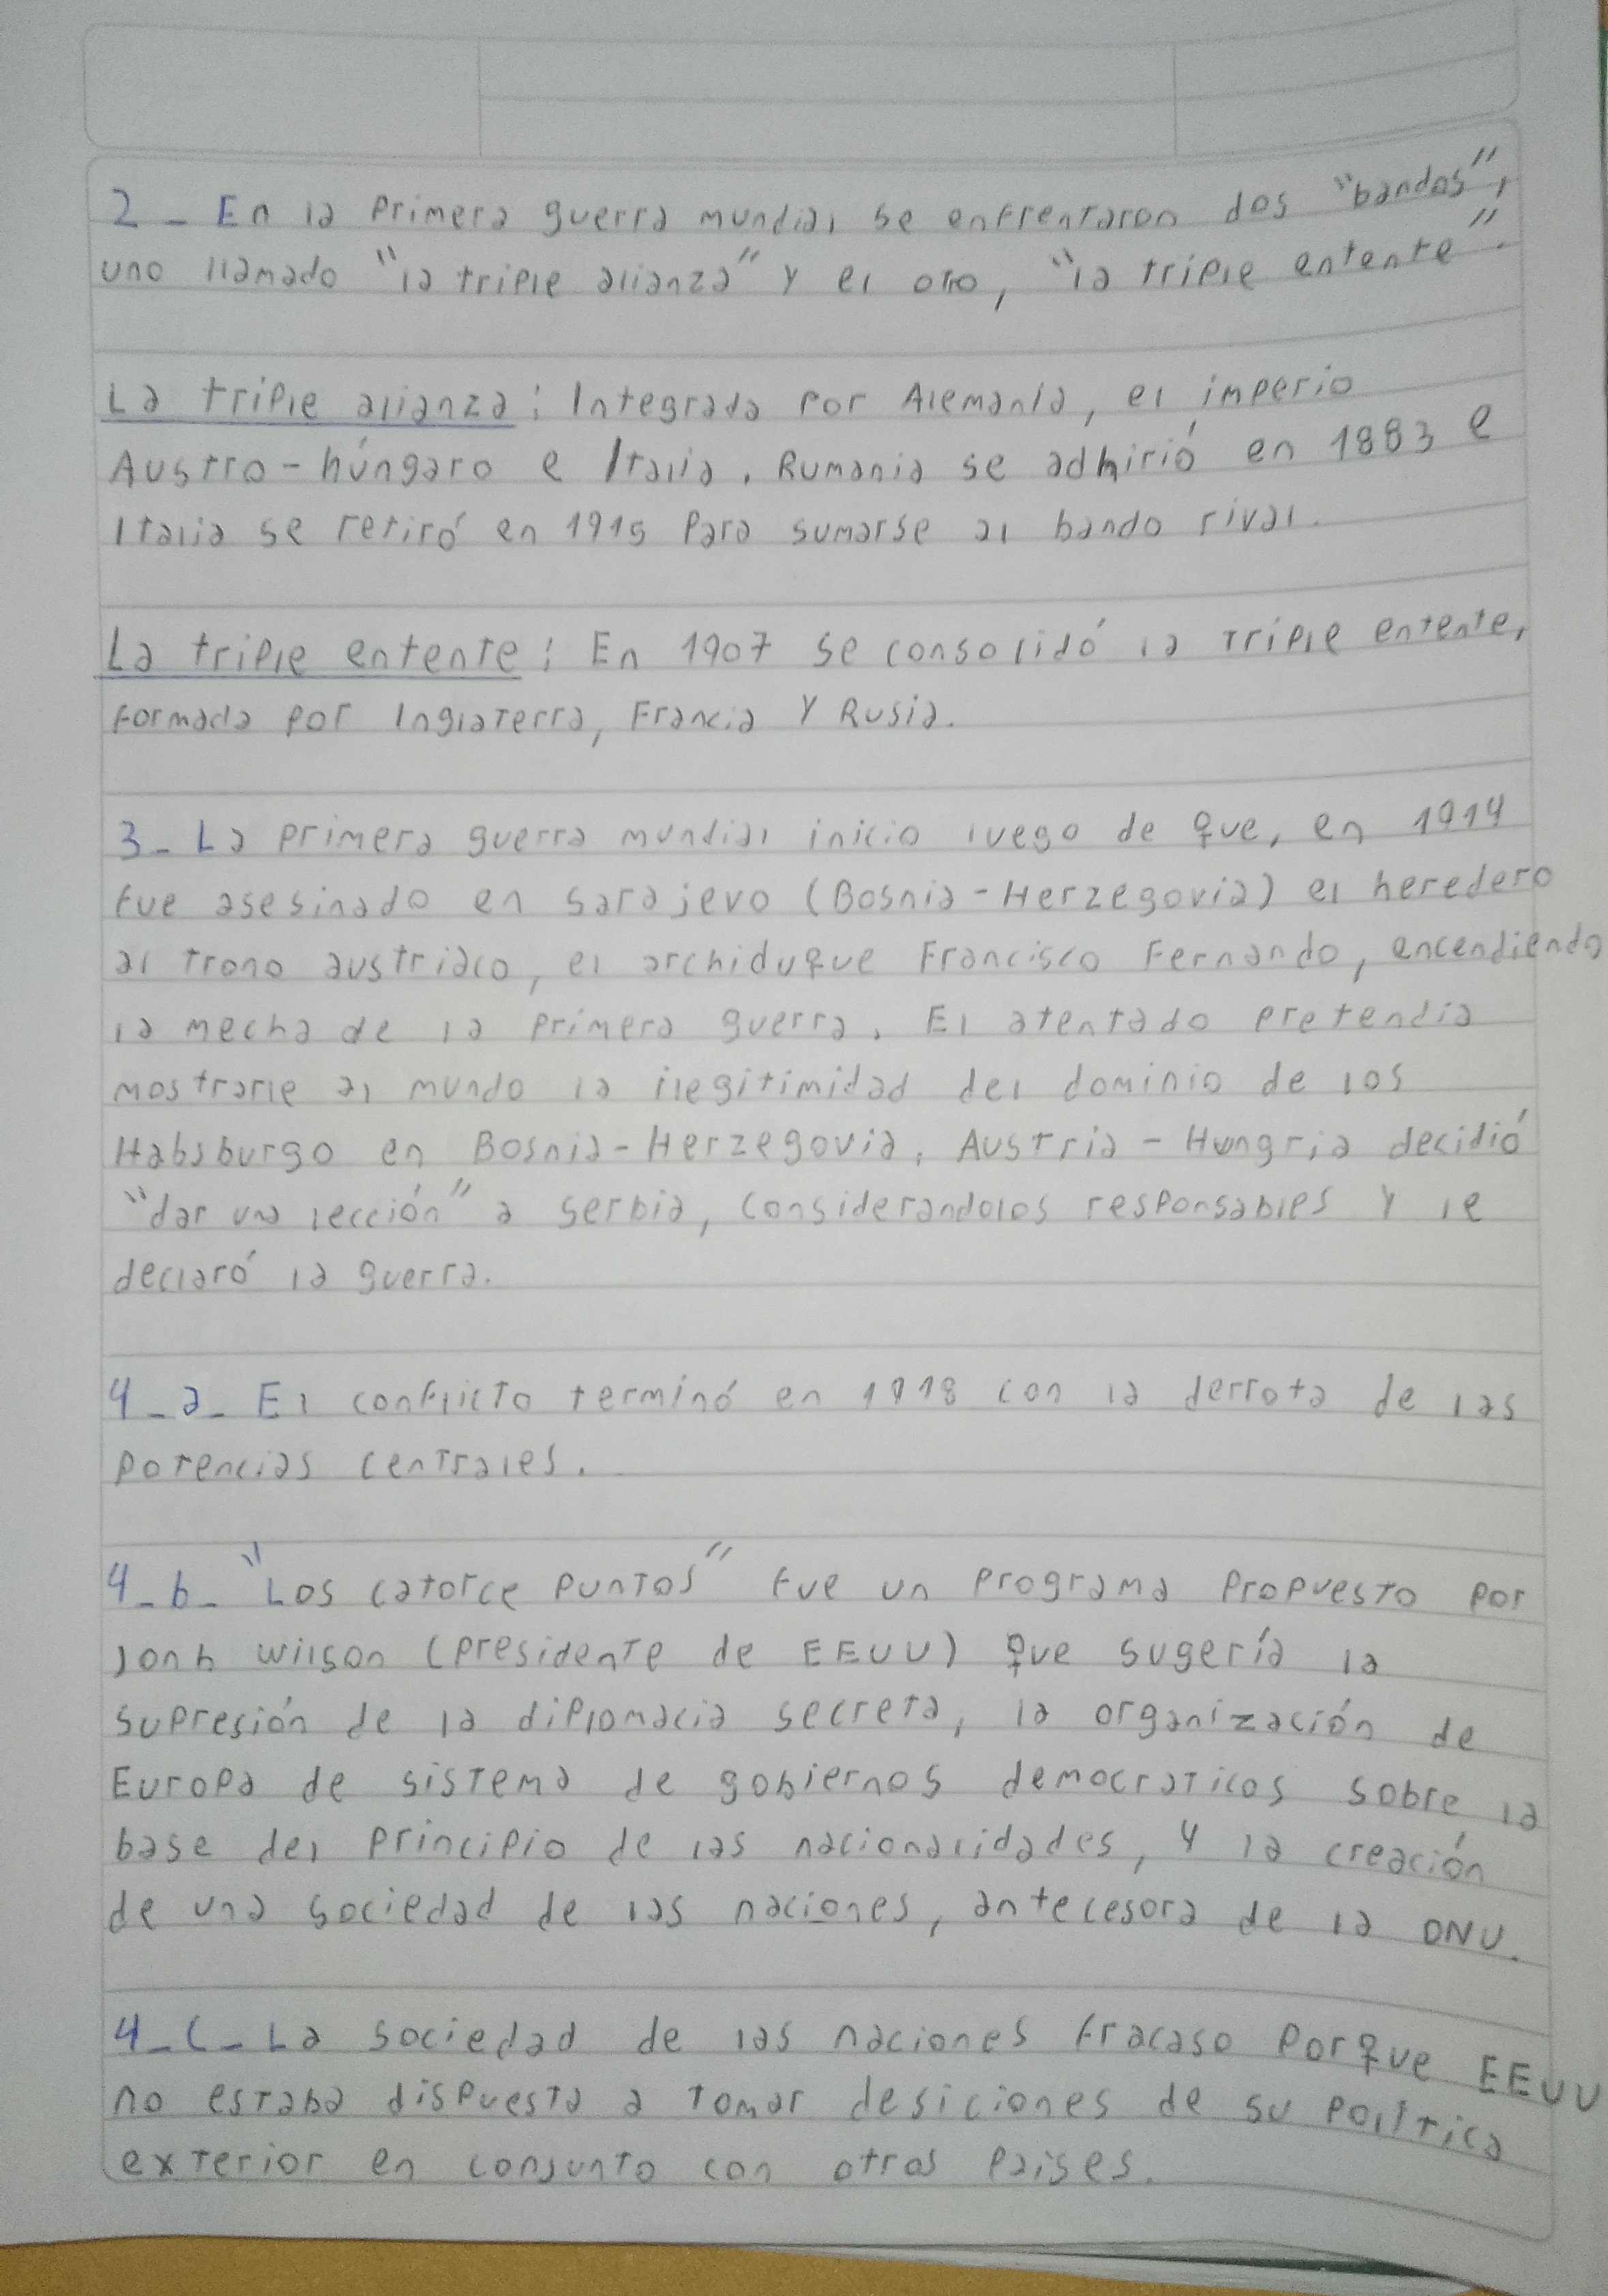 2 - En la primera guerra mundial se enfrentaron dos "bandos",
uno llamado "la triple alianza" y el otro, "la triple entente".
La triple alianza: Integrada por Alemania, el imperio
Austro-húngaro e Italia. Rumania se adhirió en 1883 e
Italia se retiró en 1915 para sumarse al bando rival.
La triple entente: En 1907 se consolidó la triple entente,
formada por Inglaterra, Francia y Rusia.
3- La primera guerra mundial inicio luego de que, en 1914
fue asesinado en sarajevo (Bosnia-Herzegovia) el heredero
al trono austriaco, el archiduque Francisco Fernando, encendiendo
la mecha de la primera guerra. El atentado pretendia
mostrarle al mundo la ilegitimidad del dominio de los
Habsburgo en Bosnia-Herzegovia. Austria-Hungria decidió
"dar una lección" a serbia, considerandolos responsables y le
declaró la guerra.
4-a- El conflicto terminó en 1918 con la derrota de las
potencias centrales.
4-b- "Los catorce puntos" fue un programa propuesto por
Jonh wilson (presidente de EEUU) que sugería la
supresión de la diplomacia secreta, la organización de
Europa de sistema de gobiernos democraticos sobre la
base del principio de las nacionalidades, y la creación
de una sociedad de las naciones, antecesora de la ONU.
4-C- La sociedad de las naciones fracaso porque EEUU
no estaba dispuesta a tomar desiciones de su política
exterior en conjunto con otros paises.